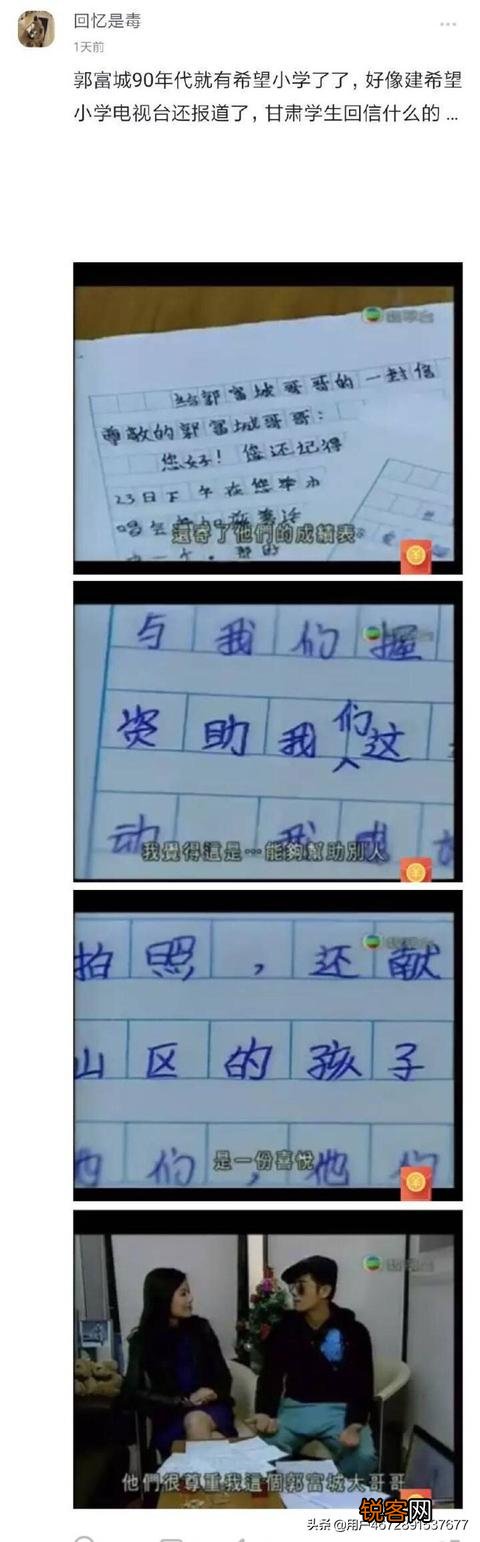 回忆是毒
1天前
郭富城90年代就有希望小学了了，好像建希望
小学电视台还报道了，甘肃学生回信什么的 ...
给郭富城哥哥的一封信
尊敬的郭富城哥哥：
您好！您还记得
23日下午在您举办
還寄了他們的成績表
与我们握
资助我们这
人
动 我
我覺得這是…能夠幫助別人
拍照，还献
山区的孩子
是一份喜悅
们，他们
他們很尊重我這個郭富城大哥哥
锐客网
头条@用户4672891537677